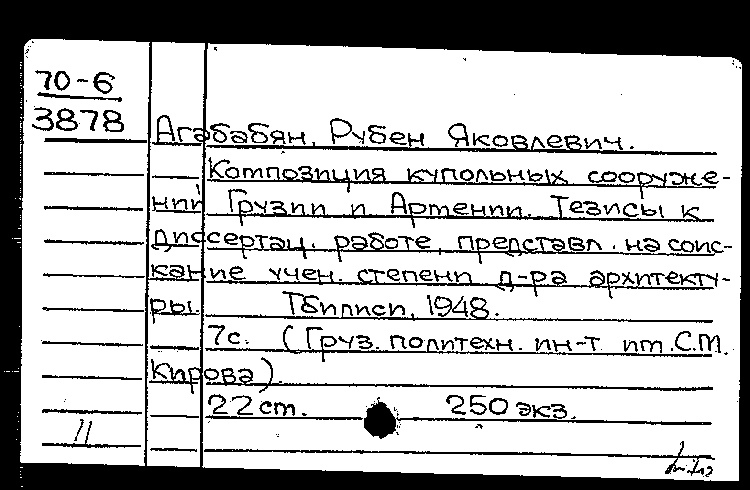 70-6
3878
Агабабян, Рубен Яковлевич.
Композиция купольных сооруже-
ний Грузии и Армении. Тезисы к
диссертац. работе, представл. на соис-
кание учен. степени д-ра архитекту-
ры. Тбилиси, 1948.
7с. (Груз. политехн. ин-т им. С.М.
Кирова).
22 см. 250 экз.
11